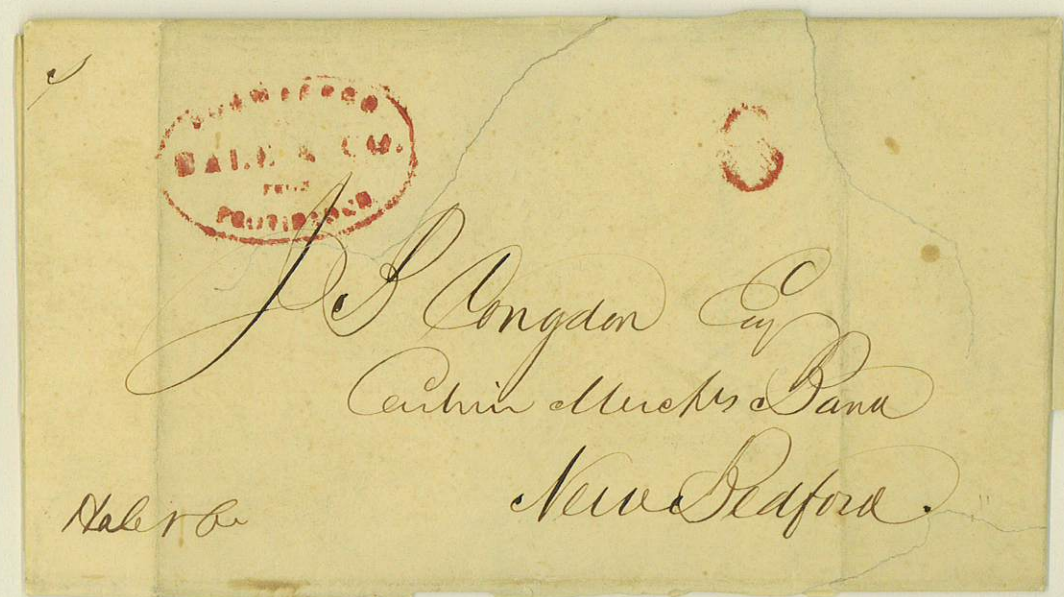 FORWARDED
HALE & CO.
FROM
PROVIDENCE
6
J B Congdon Esq
Cashier Merchts Bank
New Bedford.
Hale & Co